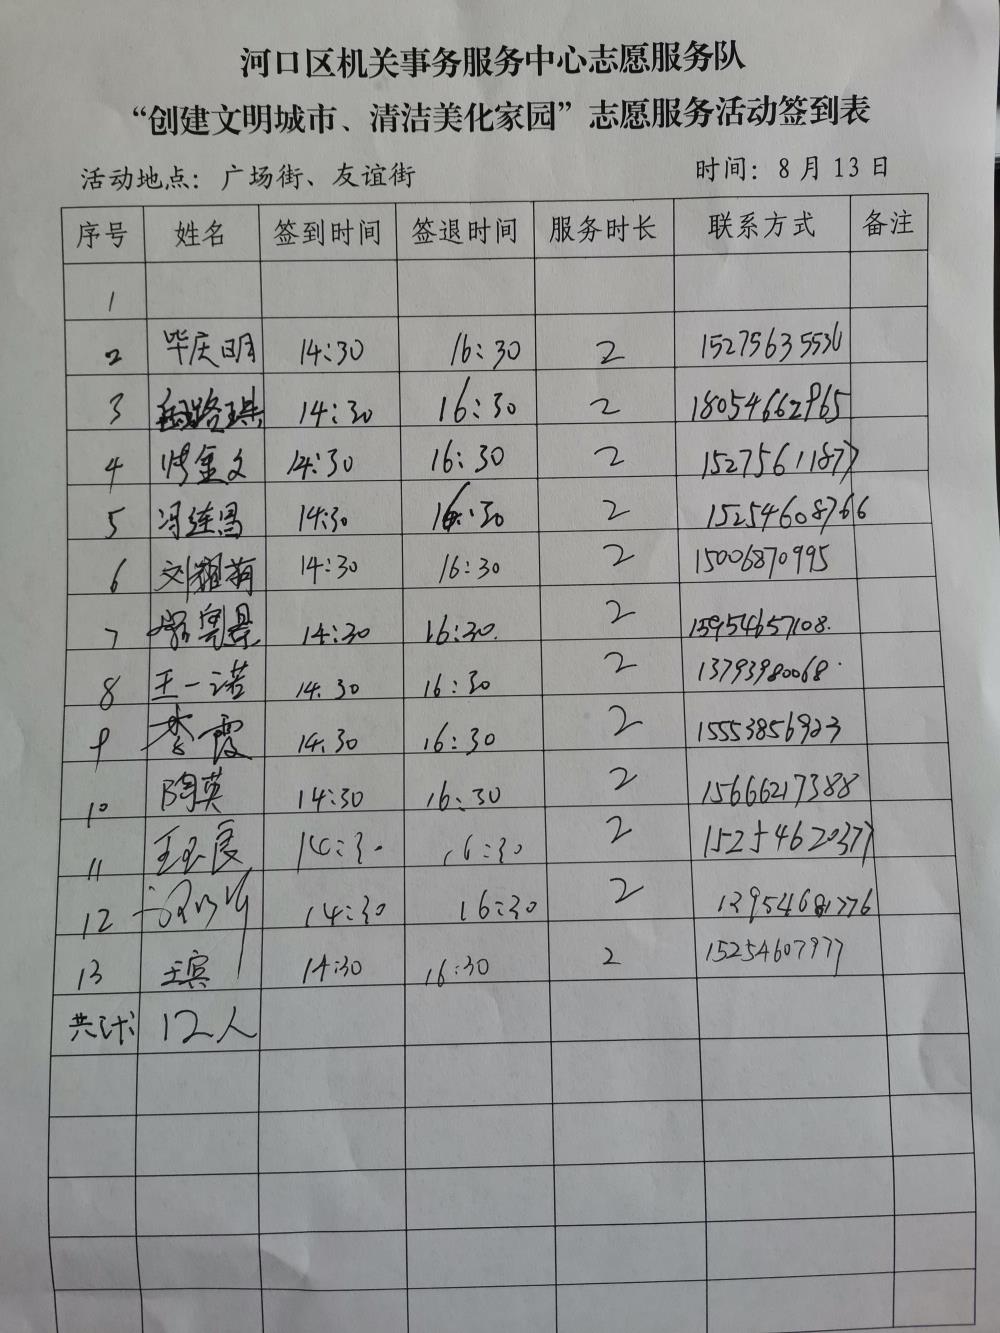 河口区机关事务服务中心志愿服务队
“创建文明城市、清洁美化家园”志愿服务活动签到表
活动地点：广场街、友谊街 时间：8月13日
序号 姓名 签到时间 签退时间 服务时长 联系方式 备注
1
2 毕庆明 14:30 16:30 2 15275635536
3 14:30 16:30 2 18054662965
4 金文 14:30 16:30 2 15275611877
5 冯连昌 14:30 16:30 2 15254608766
6 刘耀 14:30 16:30 2 15006870995
7 14:30 16:30 2 15954657108
8 王一诺 14:30 16:30 2 13793980068
9 李霞 14:30 16:30 2 15553856923
10 陶英 14:30 16:30 2 15666217388
11 王玉良 14:30 16:30 2 15254620377
12 14:30 16:30 2
13 王宾 14:30 16:30 2 15254607977
共计 12人